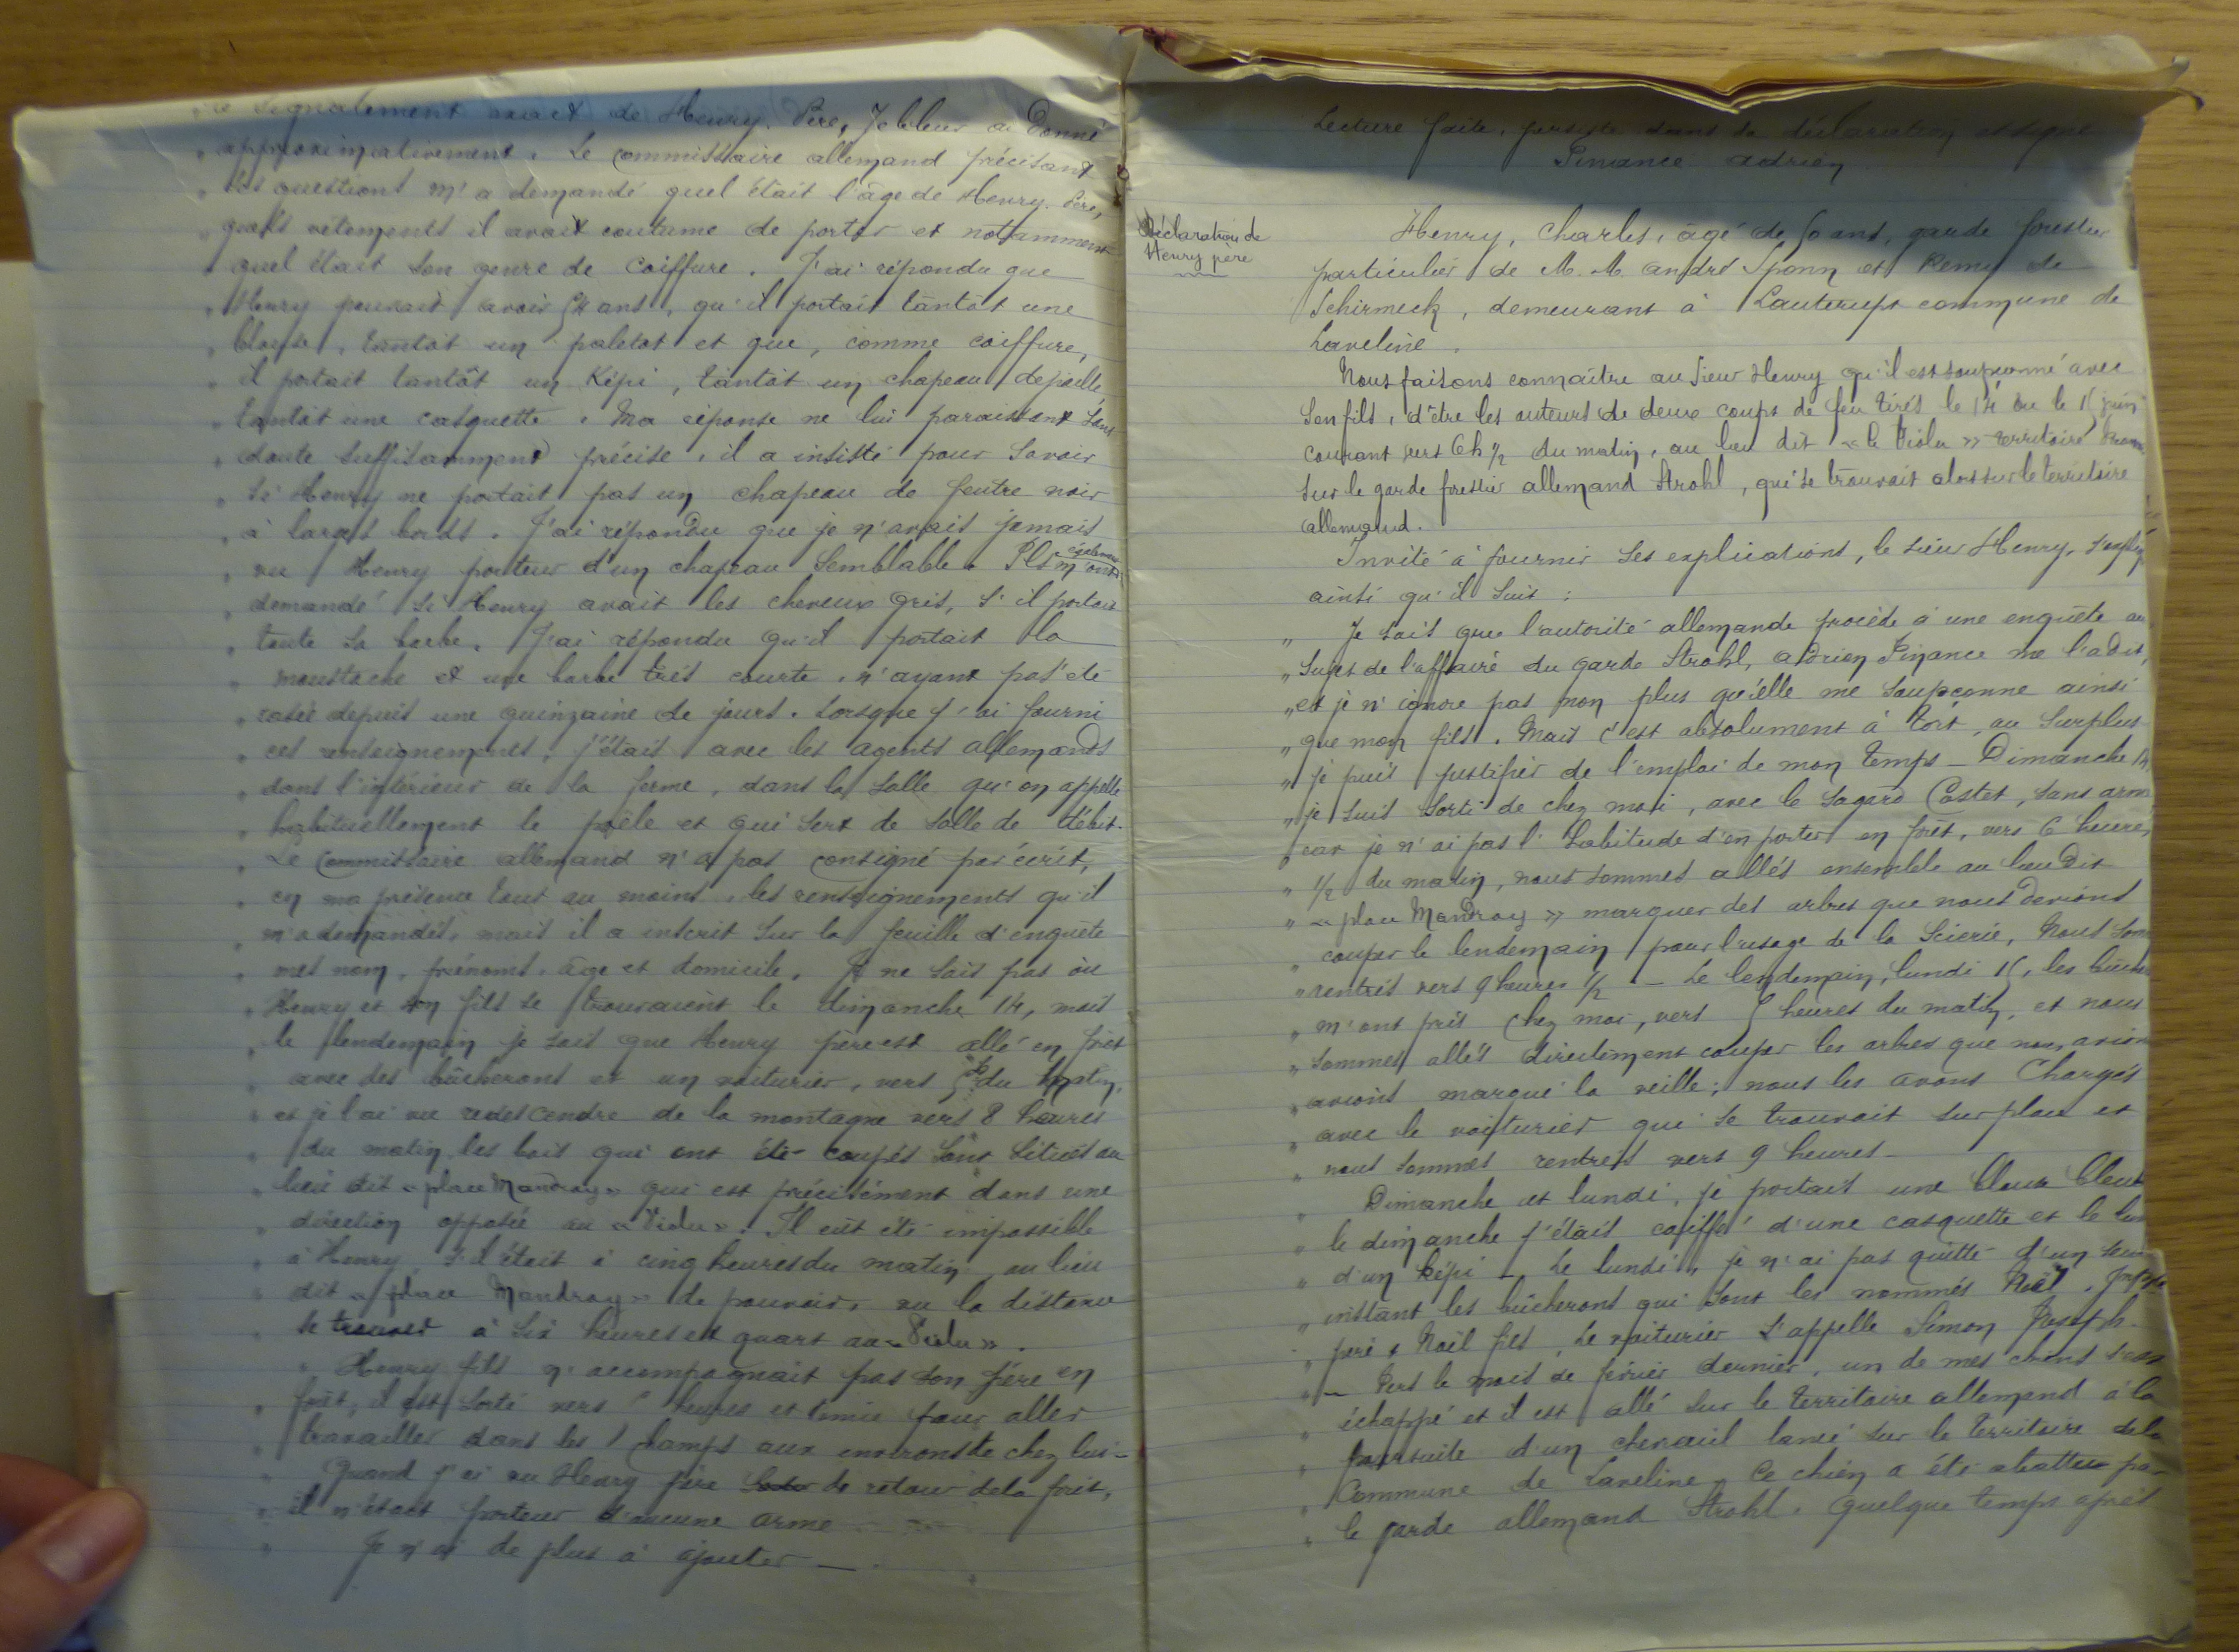 le signalement exact de Henry Père, je le leur ai donné
" approximativement. Le commissaire allemand précisant
" ses questions m'a demandé quel était l'âge de Henry père,
" quels vêtements il avait coutume de porter et notamment
" quel était son genre de coiffure. J'ai répondu que
" Henry pouvait avoir 54 ans, qu'il portait tantôt une
" blouse, tantôt un paletot et que, comme coiffure,
" il portait tantôt un Képi, tantôt un chapeau de paille,
" tantôt une casquette. Ma réponse ne lui paraissant sans
" doute suffisamment précise, il a insisté pour savoir
" si Henry ne portait pas un chapeau de feutre noir
" à larges bords. J'ai répondu que je n'avais jamais
" vu Henry porteur d'un chapeau semblable. Ils m'ont également
" demandé si Henry avait les cheveux gris, s'il portait
" toute sa barbe. J'ai répondu qu'il portait la
" moustache et une barbe très courte, n'ayant pas été
" rasée depuis une quinzaine de jours. Lorsque j'ai fourni
" ces renseignements, j'étais avec les agents allemands
" dans l'intérieur de la ferme, dans la salle qu'on appelle
" habituellement le poële et qui sert de salle de débit.
" Le Commissaire allemand n'a pas consigné par écrit,
" en ma présence tout au moins, les renseignements qu'il
" m'a demandés, mais il a inscrit sur la feuille d'enquête
" mes nom, prénoms, âge et domicile. Je ne sais pas où
" Henry et son fils se trouvaient le dimanche 14, mais
" le lendemain je sais que Henry père est allé en forêt
" avec des bûcherons et un voiturier, vers 5 h du matin,
" et je l'ai vu redescendre de la montagne vers 8 heures
" du matin. les bois qui ont été coupés sont situés au
" lieu dit « place Mandray » qui est précisément dans une
" direction opposée au « Violu ». Il eût été impossible
" à Henry, s'il était à cinq heures du matin, au lieu
" dit « place Mandray » de pouvoir, vu la distance
" se trouver à six heures et quart au « Violu ».
" Henry fils n'accompagnait pas son père en
" forêt, il est sorti vers heures et demie pour aller
" travailler dans les champs aux environs de chez lui -
" Quand j'ai vu Henry père de retour de la forêt,
" il n'était porteur d'aucune arme
" Je n'ai de plus à ajouter —.
Lecture faite, persiste dans sa déclaration et signe
Pinance Adrien
Déclaration de
Henry père
Henry, Charles, âgé de 50 ans, garde forestier
particulier de M. M. André Sponn et Remy de
Schirmeck, demeurant à Lauterupt commune de
Laveline.
Nous faisons connaître au sieur Henry qu'il est soupçonné avec
son fils, d'être les auteurs de deux coups de feu tirés le 14 ou le 15 juin
courant vers 6h ½ du matin, au lieu dit « le Violu » territoire
sur le garde forestier allemand Strohl, qui se trouvait alors sur le territoire
allemand.
Invité à fournir ses explications, le sieur Henry,
ainsi qu'il suit :
" Je sais que l'autorité allemande procède à une enquête au
" sujet de l'affaire du garde Strohl, Adrien Pinance me l'a dit,
" et je n'ignore pas non plus qu'elle me soupçonne ainsi
" que mon fils. Mais c'est absolument à tort, au surplus
" je puis justifier de l'emploi de mon temps — Dimanche 14,
" je suis sorti de chez moi, avec le sagard Costet, sans arme
" car je n'ai pas l'habitude d'en porter en forêt, vers 6 heures
" ½ du matin, nous sommes allés ensemble au lieu dit
" « place Mandray » marquer des arbres que nous devions
" couper le lendemain pour l'usage de la scierie, Nous sommes
" rentrés vers 9 heures ½ — Le lendemain, lundi 15, les
" m'ont pris chez moi, vers 5 heures du matin, et nous
" sommes allés directement couper les arbres que nous avions
" avions marqué la veille ; nous les avons chargés
" avec le voiturier qui se trouvait sur place et
" nous sommes rentrés vers 9 heures —
" Dimanche et lundi, je portais une blouse bleue
" le dimanche j'étais coiffé d'une casquette et le
" d'un képi — Le lundi, je n'ai pas quitté d'un seul
" instant les bûcherons qui sont les nommés Noël,
" père & Noël fils, Le voiturier s'appelle Simon Joseph —
" — Vers le mois de février dernier, un de mes chiens s'est
" échappé et il est allé sur le territoire allemand à la
" poursuite d'un chevreuil lancé sur le territoire de la
" Commune de Laveline. Ce chien a été abattu par
" le garde allemand Strohl. Quelque temps après